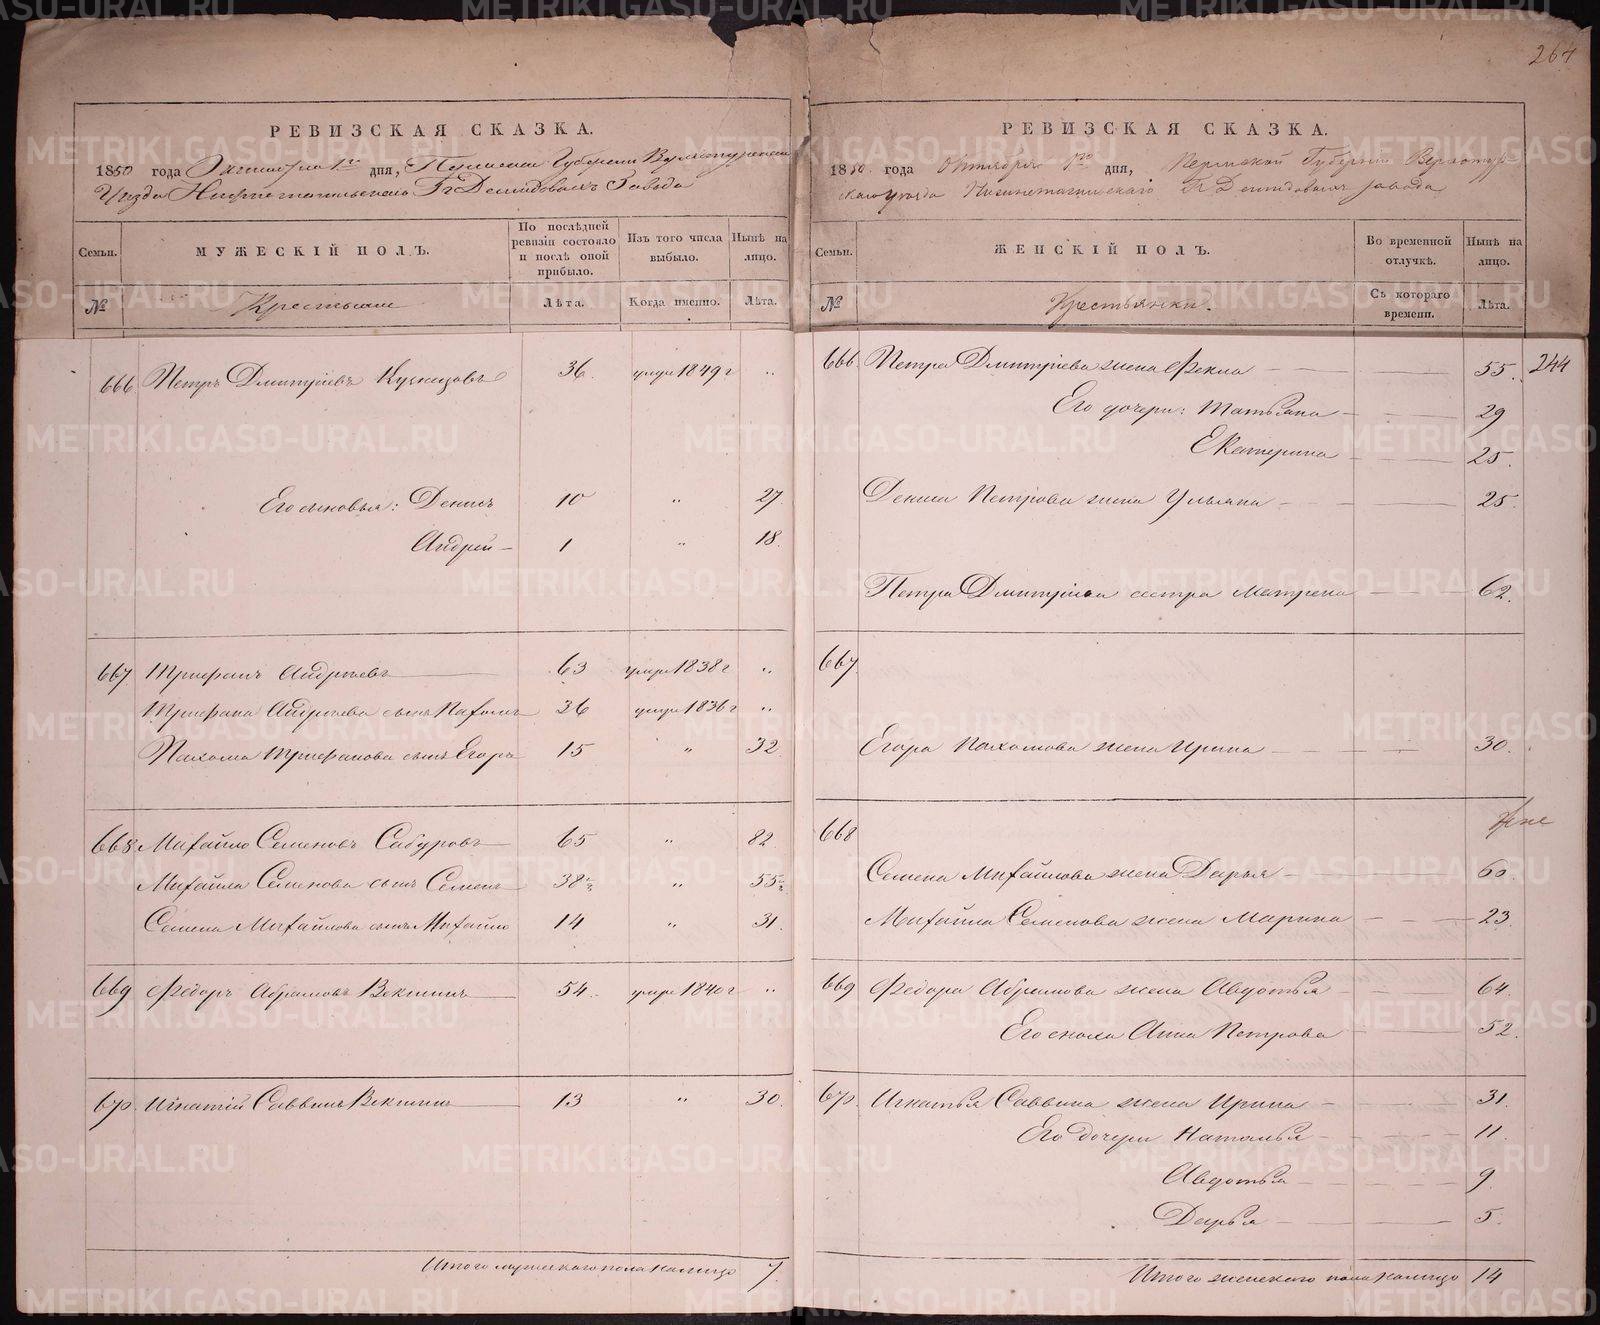 264
РЕВИЗСКАЯ СКАЗКА.
1850 года Октября 1го дня, Пермской Губернии Верхотурскаго
Уезда Нижнетагильскаго Гг Демидовыхъ Завода
Семьи.
МУЖЕСКІЙ ПОЛЪ.
По послѣдней ревизіи состояло и послѣ оной прибыло.
Изъ того числа выбыло.
Нынѣ на лицо.
№
Крестьяне
Лѣта.
Когда именно.
Лѣта.
666 Петръ Дмитріевъ Кузнецовъ 36. умре 1849 г „
Его сыновья: Денисъ 10 „ 27.
Андрей 1 „ 18.
667. Трифанъ Андреевъ 63 умре 1838 г „
Трифана Андреева сынъ Пахомъ 36 умре 1836 г „
Пахома Трифанова сынъ Егоръ 15 „ 32
668. Михайло Семеновъ Сабуровъ 65 „ 82.
Михайла Семенова сынъ Семенъ 38½ „ 55½
Семена Михайлова сынъ Михайло 14 „ 31.
669 Федоръ Абрамовъ Векшинъ 54. умре 1840 г „
670. Игнатій Саввинъ Векшинъ 13 „ 30.
Итого мужескаго пола налицо 7.
РЕВИЗСКАЯ СКАЗКА.
1850. года Октября 1го дня, Пермской Губерніи Верхотур-
скаго уезда Нижнетагильскаго Гг Демидовыхъ завода
Семьи.
ЖЕНСКІЙ ПОЛЪ.
Во временной отлучкѣ.
Нынѣ на лицо.
№
Крестьянки.
Съ котораго времени.
Лѣта.
666 Петра Дмитріева жена Фекла 55. 244
Его дочери: Татьяна 29
Екатерина 25.
Дениса Петрова жена Ульяна 25.
Петра Дмитріева сестра Матрена 62.
667.
Егора Пахомова жена Ирина 30.
668
Семена Михайлова жена Дарья 60.
Михайла Семенова жена Марина 23.
669 Федора Абрамова жена Авдотья 64.
Его сноха Анна Петрова 52.
670. Игнатья Саввина жена Ирина 31.
Его дочери Наталья 11.
Авдотья 9.
Дарья 5.
Итого женскаго пола налицо 14
METRIKI.GASO-URAL.RU